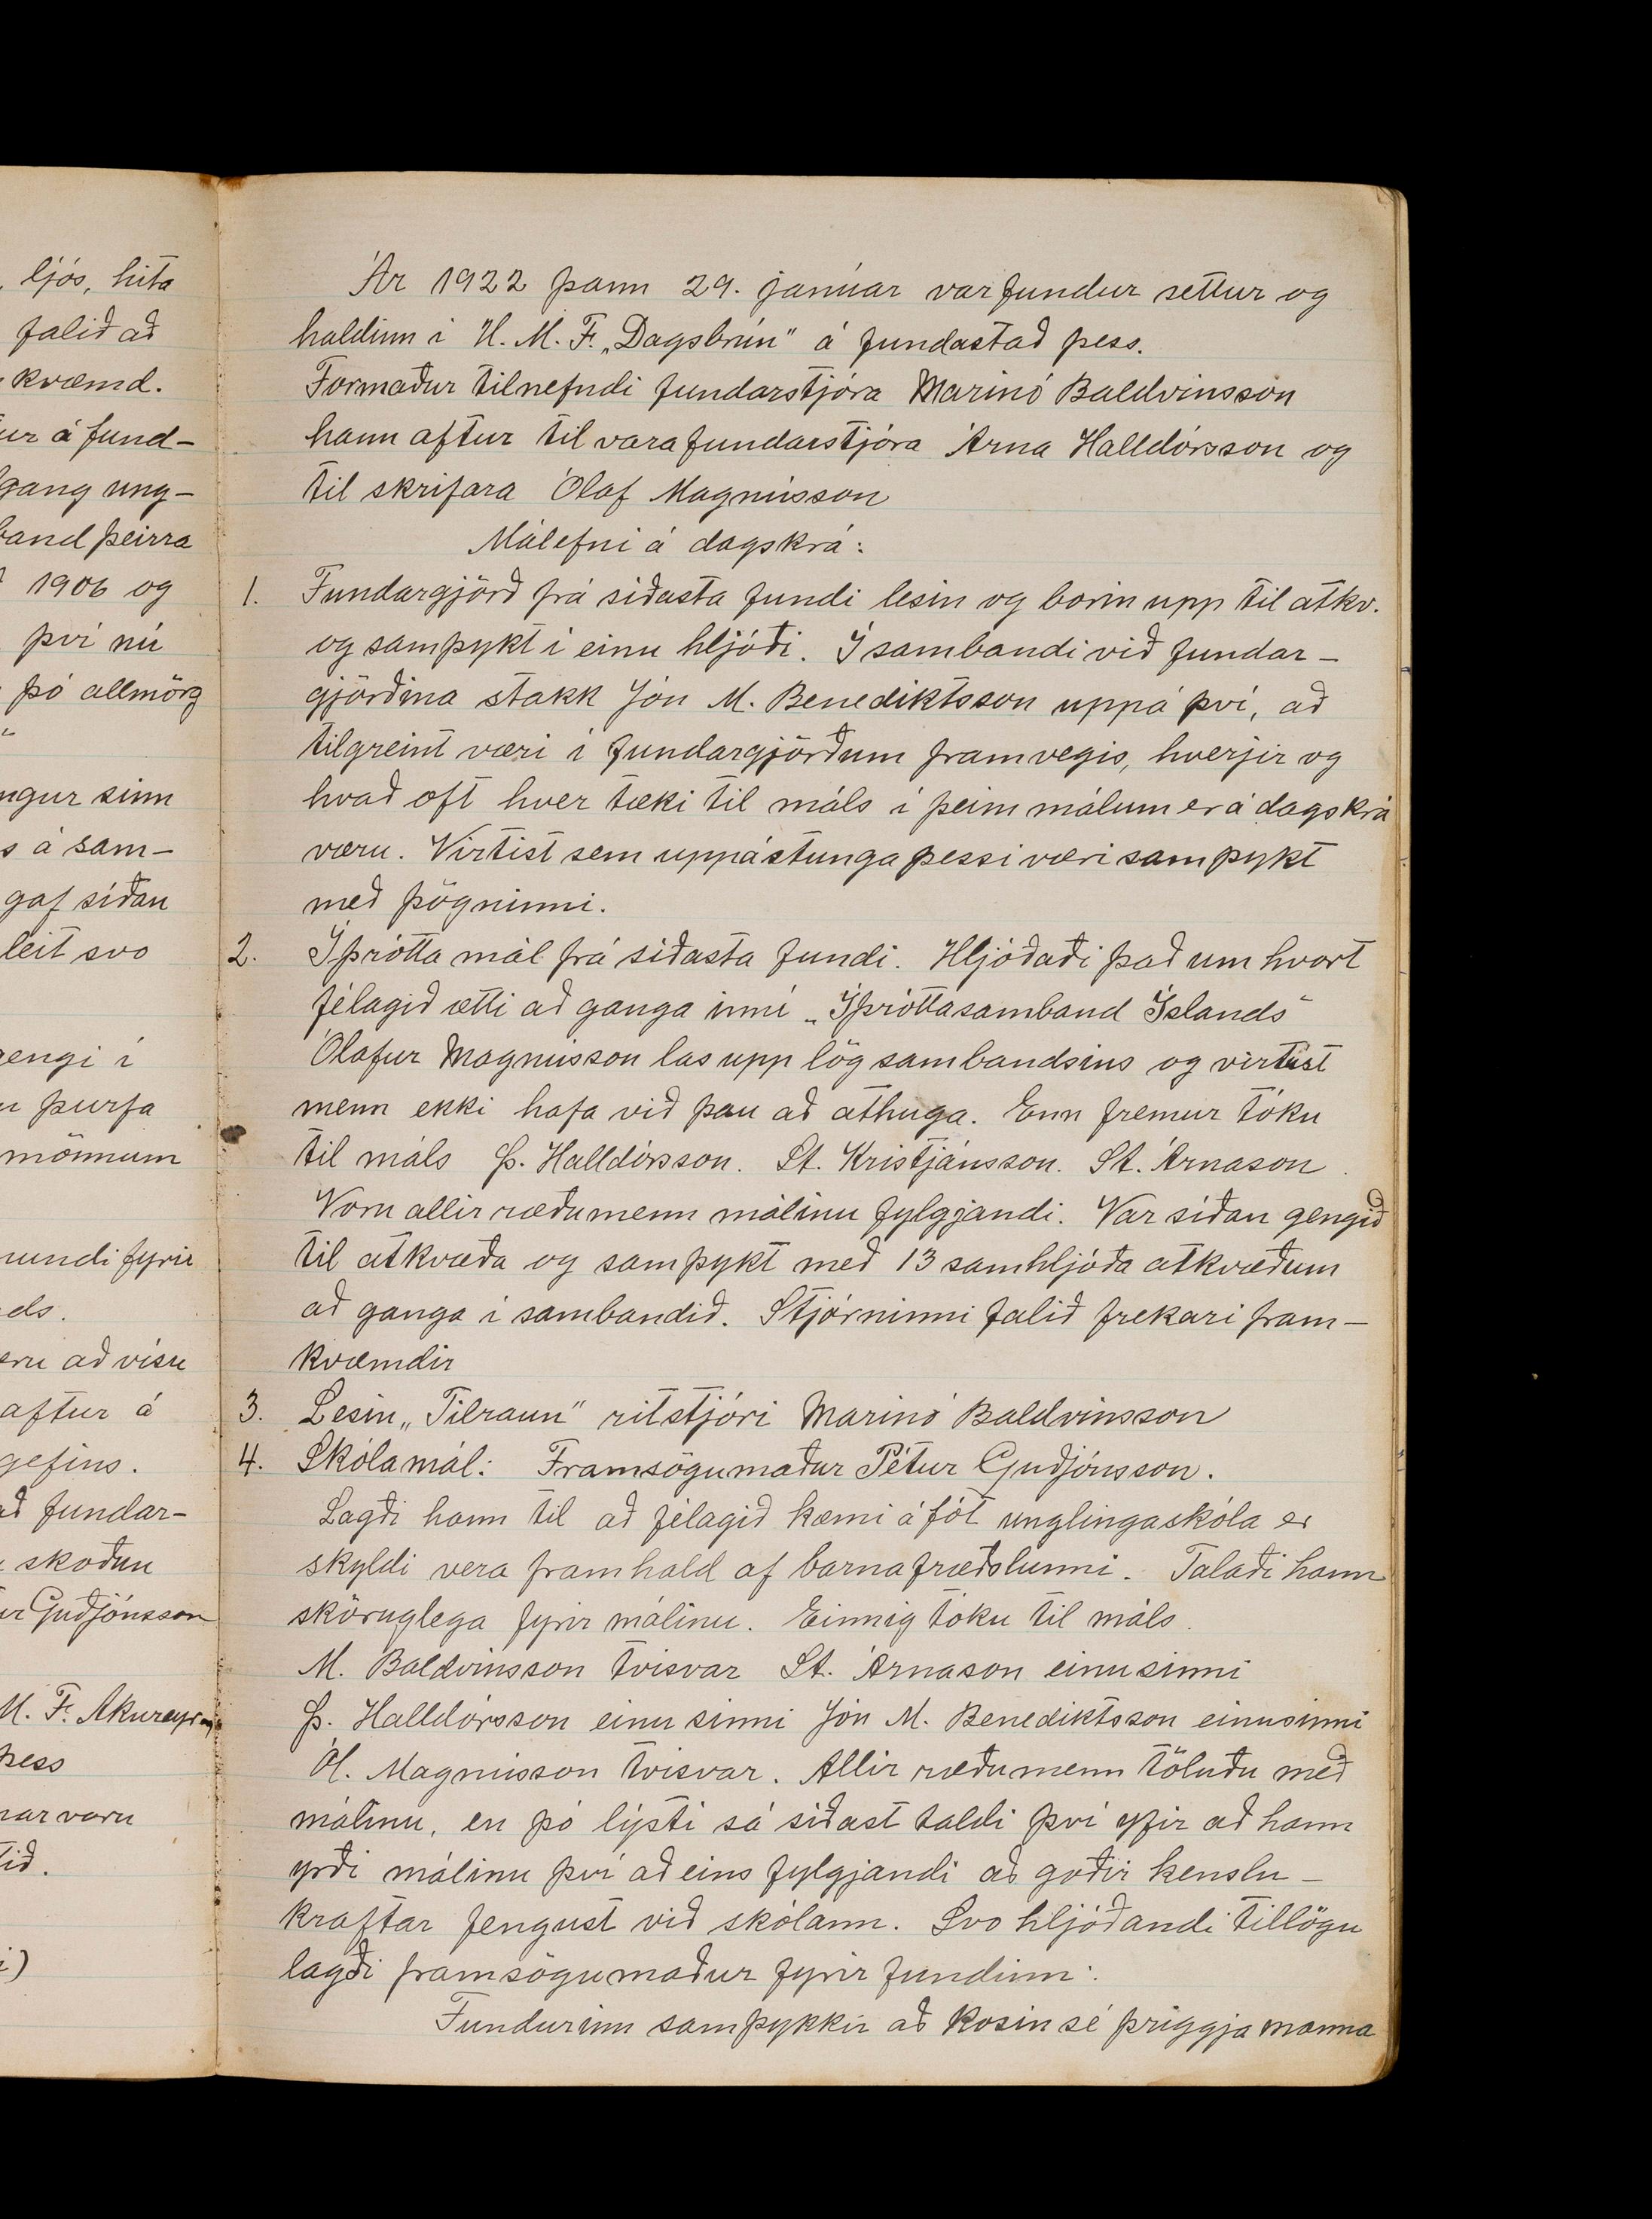 ljós, hita
falið að
kvæmd.
ur á fund-
gang ung-
band þeirra
1906 og
því nú
þó allmörg
ngur sinn
s á sam-
gaf síðan
leit svo
gengi í
þurfa
mönnum
mundi fyrir
ds.
eru að vísu
aftur á
gefins.
að fundar-
skoðun
ur Guðjónsson
M. F. Akureyrar
þess
nar voru
tið.
Ár 1922 þann 29. janúar var fundur settur og
haldinn í U. M. F. „Dagsbrún" á fundastað þess.
Formaður tilnefndi fundarstjóra Marinó Baldvinsson
hann aftur til vara fundarstjóra Árna Halldórsson og
til skrifara Ólaf Magnússon
Málefni á dagskrá:
1. Fundargjörð frá síðasta fundi lesin og borin upp til atkv.
og samþykt í einu hljóði. Í sambandi við fundar-
gjörðina stakk Jón M. Benediktsson uppá því, að
tilgreint væri í fundargjörðum framvegis, hverjir og
hvað oft hver tæki til máls í þeim málum er á dagskrá
væru. Virtist sem uppástunga þessi væri samþykt
með þögninni.
2. Íþrótta mál frá síðasta fundi. Hljóðaði það um hvort
félagið ætti að ganga inní „Íþróttasamband Íslands"
Ólafur Magnússon las upp lög sambandsins og virtust
menn ekki hafa við þau að athuga. Enn fremur tóku
til máls Þ. Halldórsson. St. Kristjánsson. St. Árnason.
Voru allir ræðumenn málinu fylgjandi. Var síðan gengið
til atkvæða og samþykt með 13 samhljóða atkvæðum
að ganga í sambandið. Stjórninni falið frekari fram-
kvæmdir
3. Lesin „Tilraun" ritstjóri Marinó Baldvinsson
4. Skólamál: Framsögumaður Pétur Guðjónsson.
Lagði hann til að félagið kæmi á fót unglingaskóla er
skyldi vera framhald af barnafræðslunni. Talaði hann
sköruglega fyrir málinu. Einnig tóku til máls.
M. Baldvinsson tvisvar St. Árnason einusinni
Þ. Halldórsson einu sinni Jón M. Benediktsson einusinni
Ól. Magnússon tvisvar. Allir ræðumenn töluðu með
málinu, en þó lýsti sá síðast taldi því yfir að hann
yrði málinu því að eins fylgjandi að góðir kenslu-
kraftar fengust við skólann. Svo hljóðandi tillögu
lagði framsögumaður fyrir fundinn:
Fundurinn samþykkir að kosin sé þriggja manna